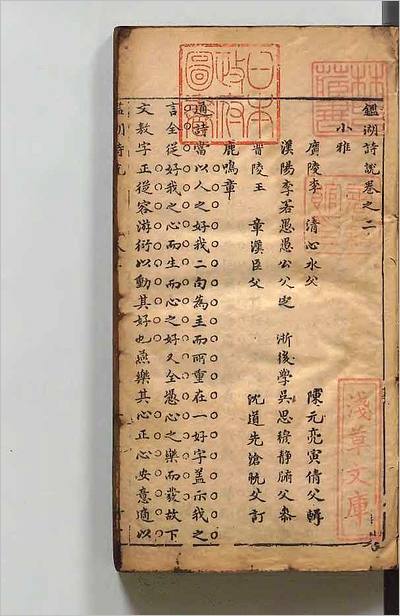 鑑湖詩說卷之二
小雅
廣陵李　清心水父
陳元亮寅倩父輯
漢陽李若愚愚公父定
浙後學吳思穆靜腑父參
晉陵王　章漢臣父
沈道先滄帆父訂
鹿鳴章
通詩當以人之好我二句為主而所重在一好字蓋示我之
言全從好我之心而生而心之好又全憑心之樂而發故下
文教字正從容游衍以動其好也燕樂其心正心安意適以
日本
政府
圖書
淺草文庫
林氏
藏書